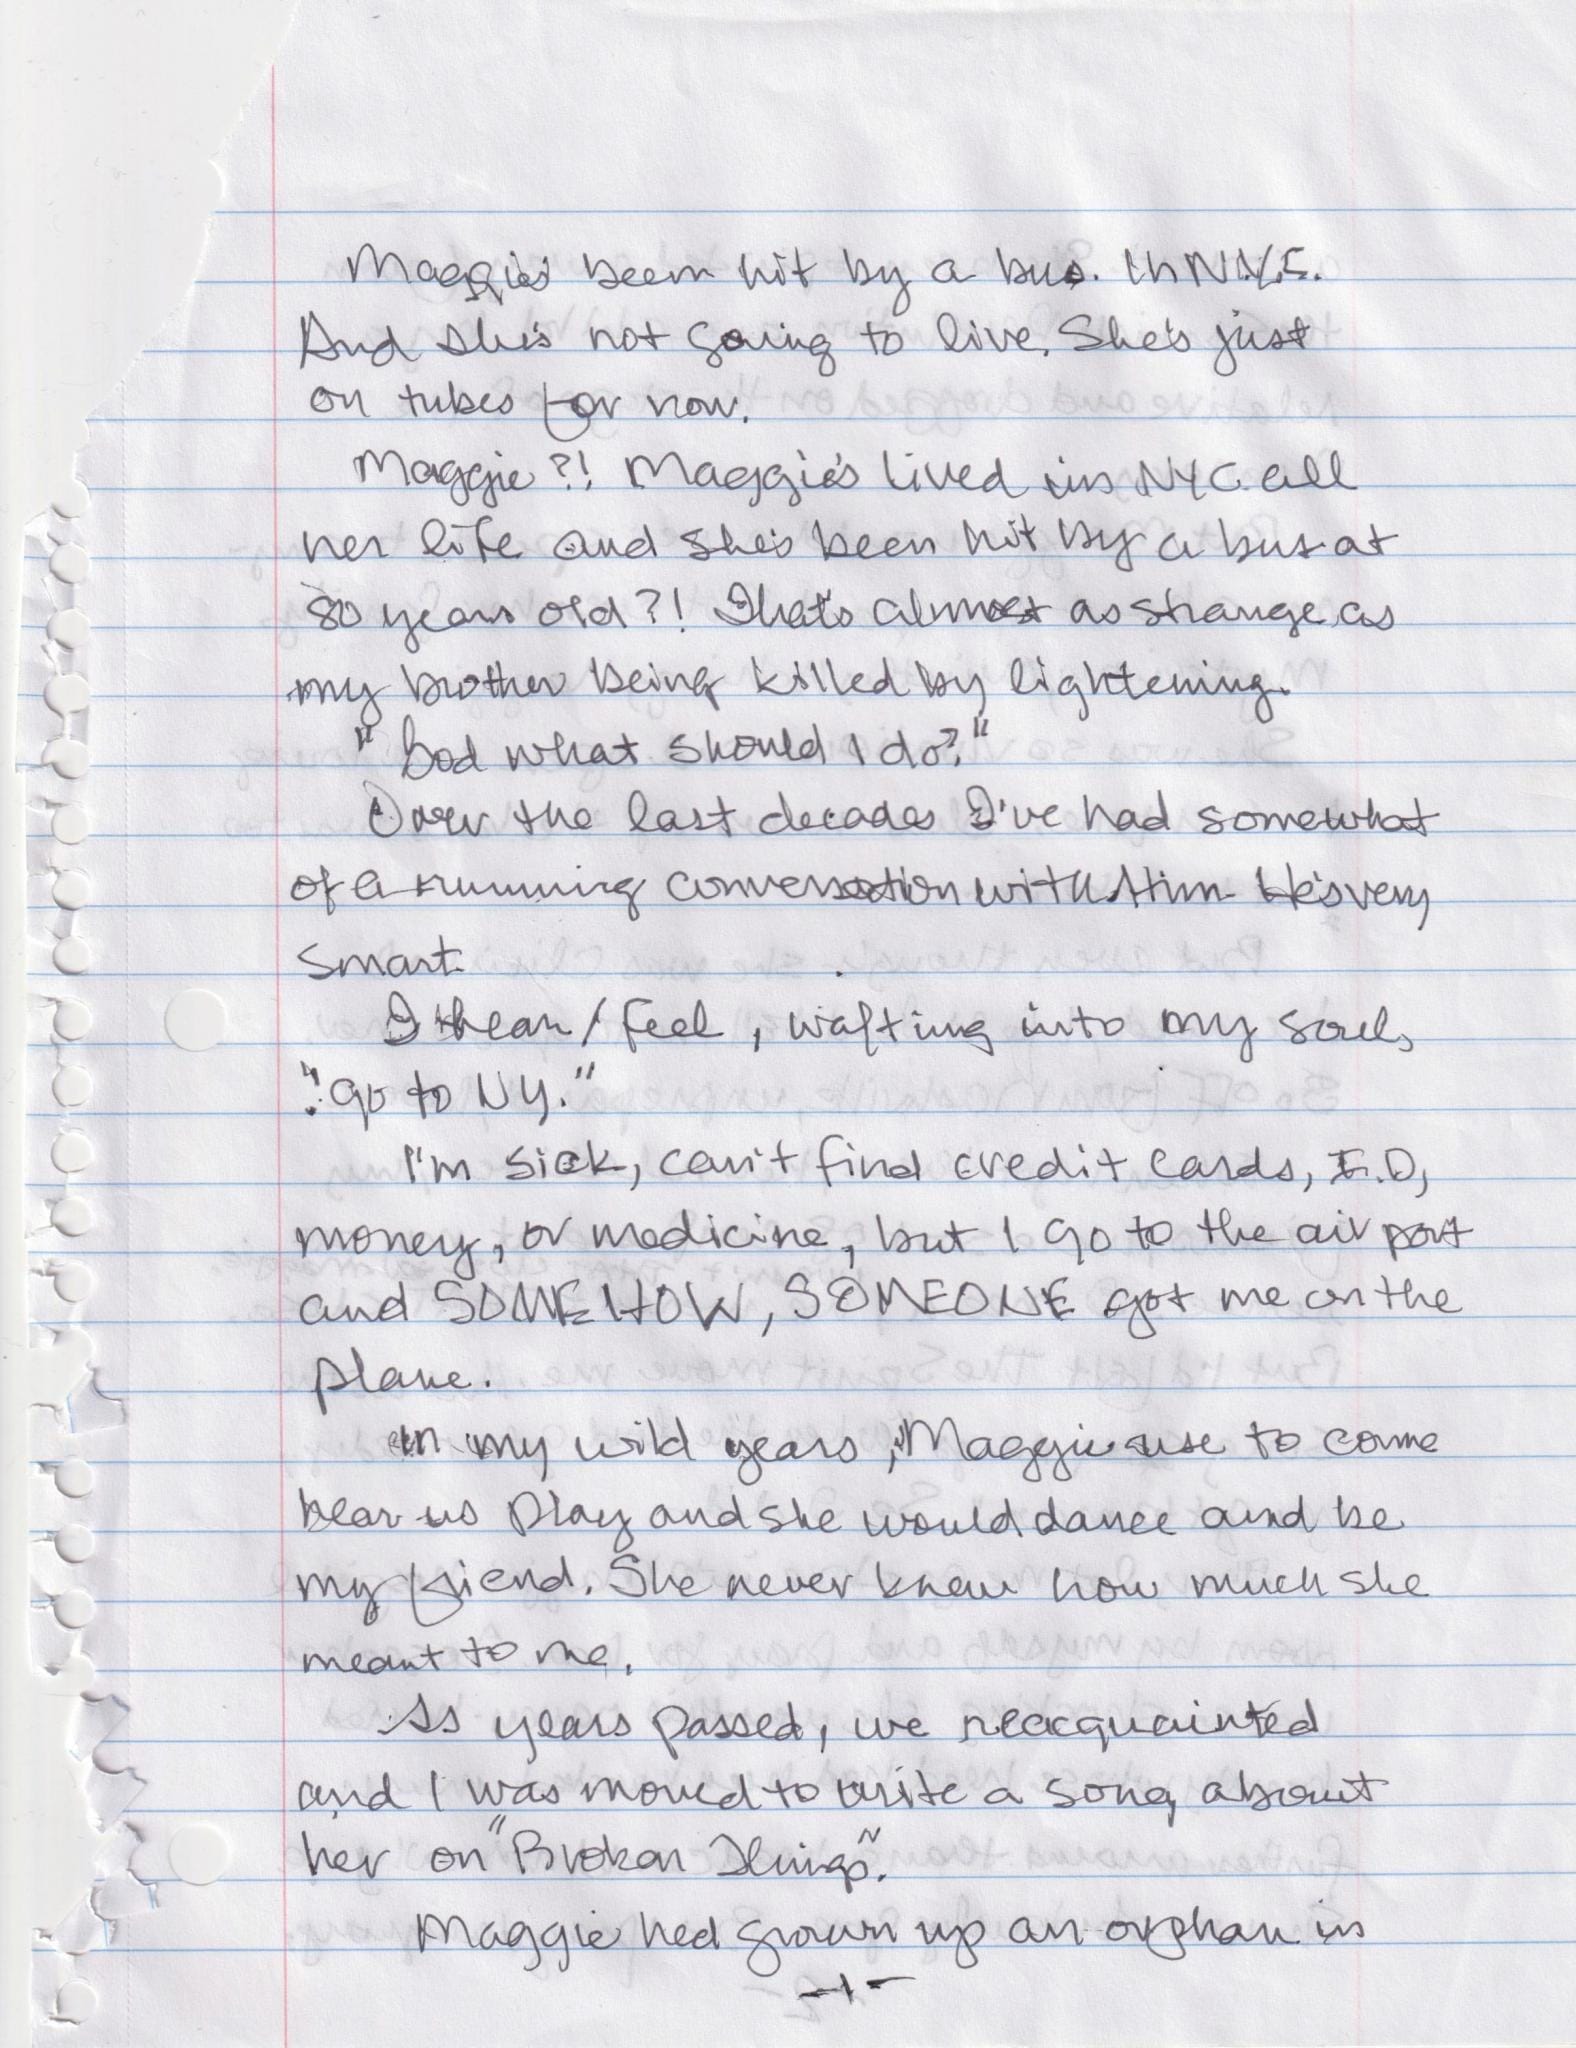 Maggie's been hit by a bus. In N.Y.C.
And she's not going to live. She's just
on tubes for now.
Maggie?! Maggie's lived in NYC all
her life and she's been hit by a bus at
80 years old?! That's almost as strange as
my brother being killed by lightening.
"God what should I do?"
Over the last decades I've had somewhat
of a running conversation with Him. He's very
smart.
I hear/feel, wafting into my soul,
"go to NY."
I'm sick, can't find credit cards, I.D,
money, or medicine, but I go to the airport
and SOMEHOW, SOMEONE got me on the
plane.
in my wild years, Maggie use to come
hear us play and she would dance and be
my friend. She never knew how much she
meant to me.
As years passed, we reacquainted
and I was moved to write a song about
her on "Broken Things".
Maggie had grown up an orphan in
-1-